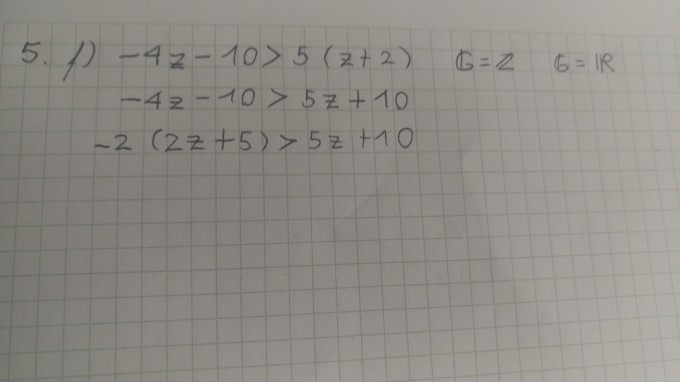 5. f) -4z - 10 > 5 (z + 2) G = ℤ G = ℝ
-4z - 10 > 5z + 10
-2 (2z + 5) > 5z + 10